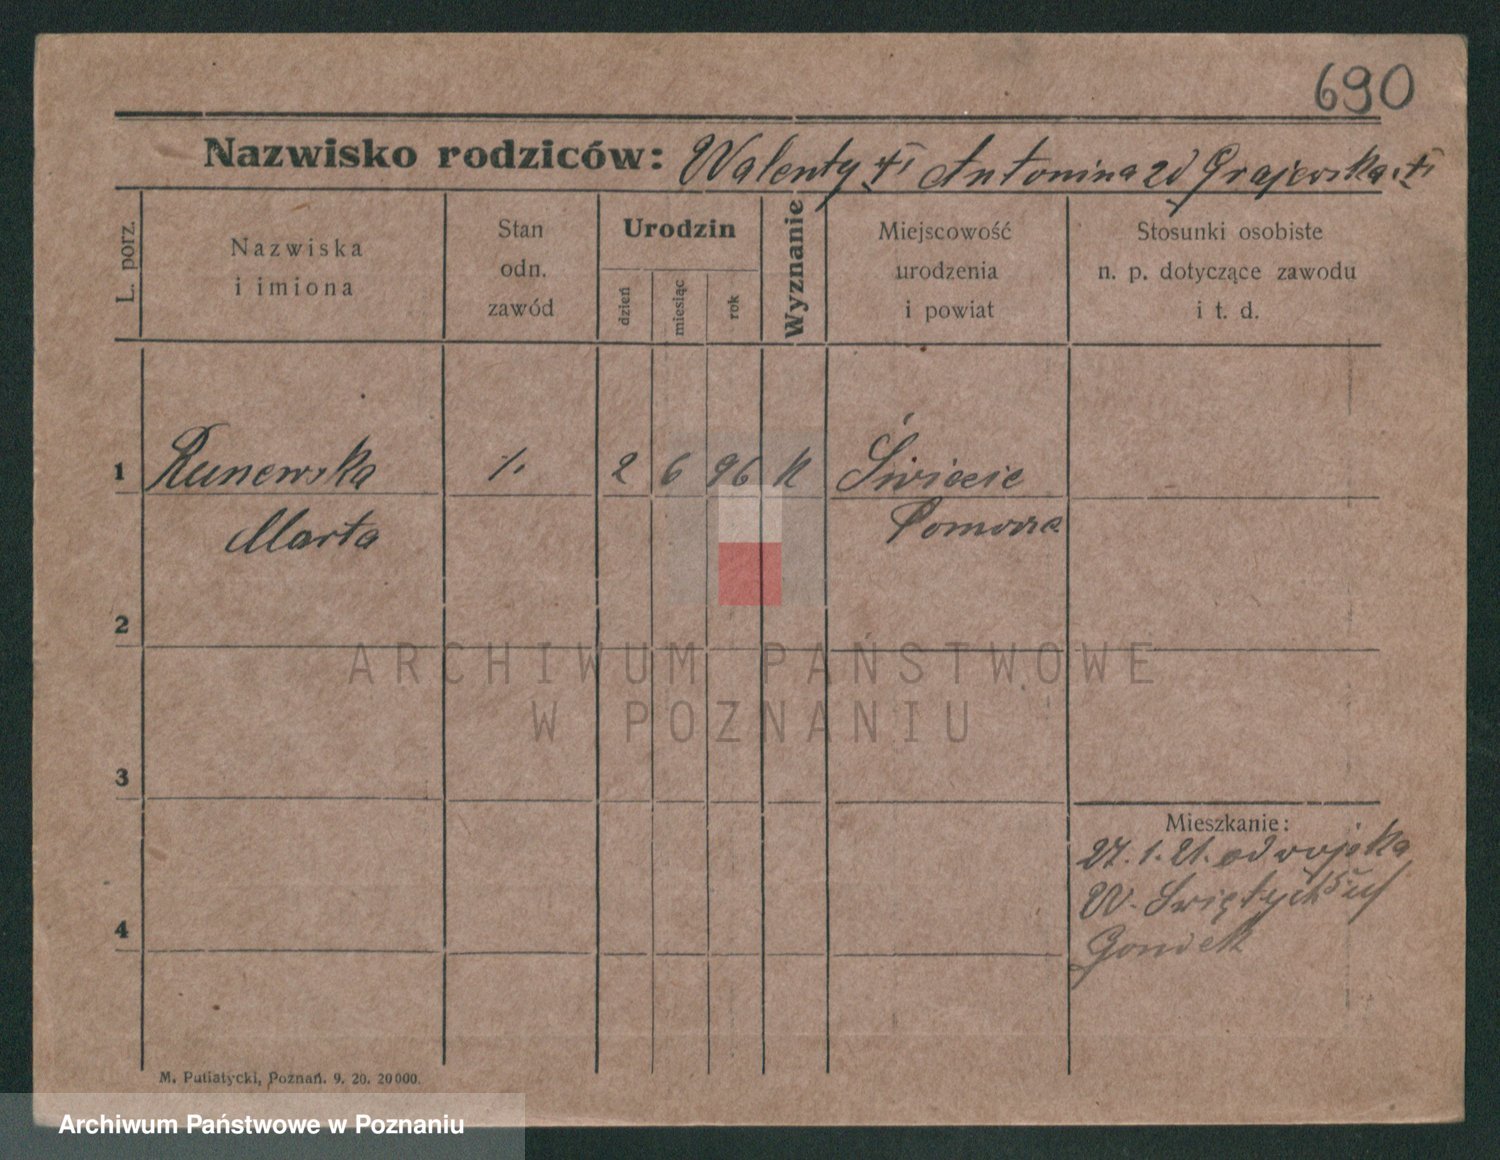 690
Nazwisko rodziców: Walenty Antonina zd Grajewska
L. porz.
Nazwiska
i imiona
Stan
odn.
zawód
Urodzin
dzień
miesiąc
rok
Wyznanie
Miejscowość
urodzenia
i powiat
Stosunki osobiste
n. p. dotyczące zawodu
i t. d.
1 Runewska ·/. 2 6 96 K Świecie
Marta Pomorze
2
3
4
Mieszkanie:
27.1.21. od wojska
W.
M. Putiatycki, Poznań. 9. 20. 20000.
ARCHIWUM PAŃSTWOWE
W POZNANIU
Archiwum Państwowe w Poznaniu